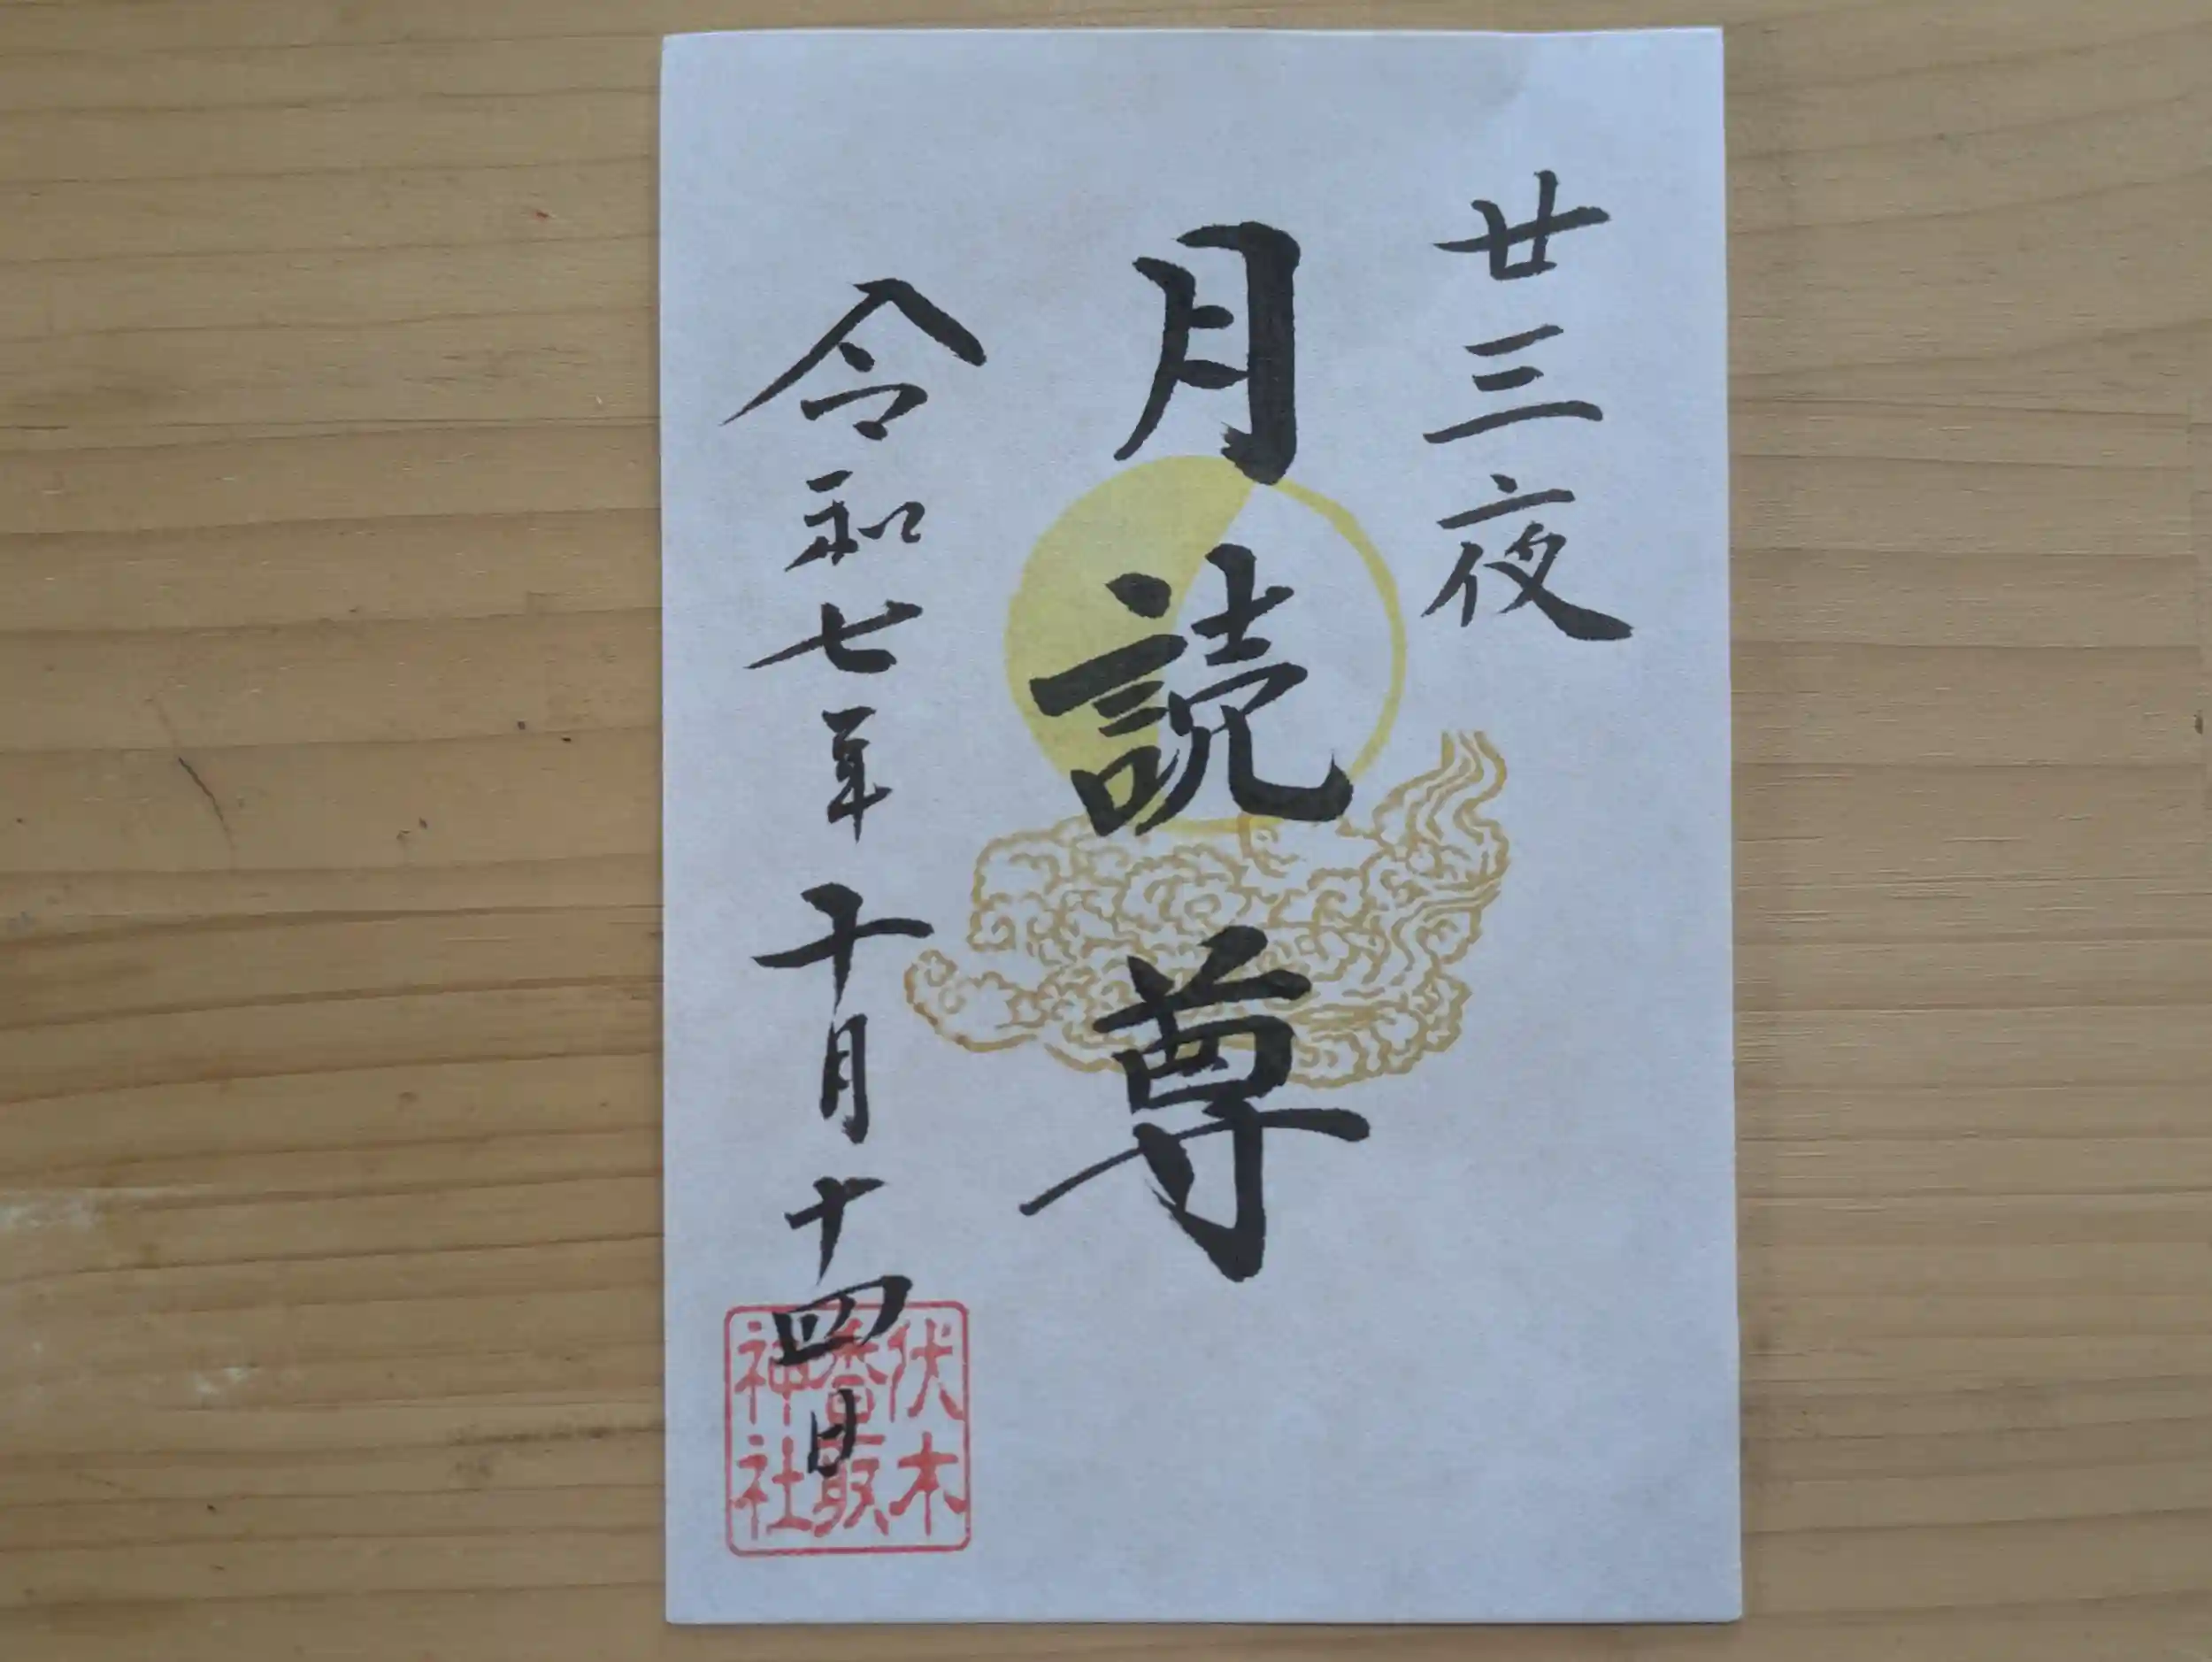 廿三夜
月読尊
令和七年十月十四日
伏木
香取
神社